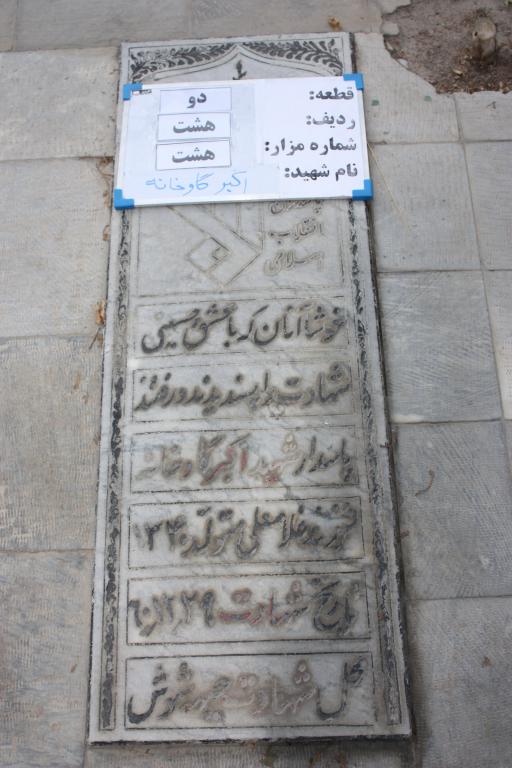 قطعه: دو
ردیف: هشت
شماره مزار: هشت
نام شهید: اکبر گاوخانه
پاسداران
انقلاب
اسلامی
خوشا آنان که با عشق حسینی
شهادت را پسندیدند و رفتند
پاسدار شهید اکبر گاوخانه
فرزند غلامعلی متولد ۱۳۴۰
تاریخ شهادت
محل شهادت جسر شوش